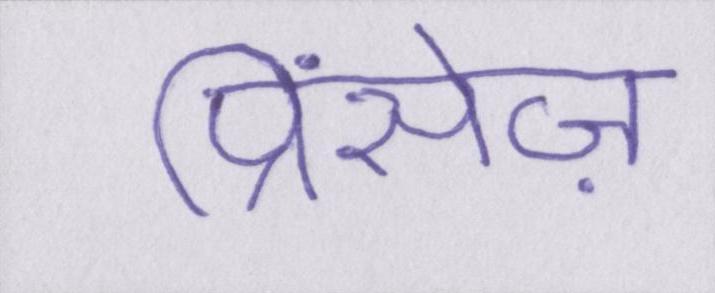 प्रिंसेज़